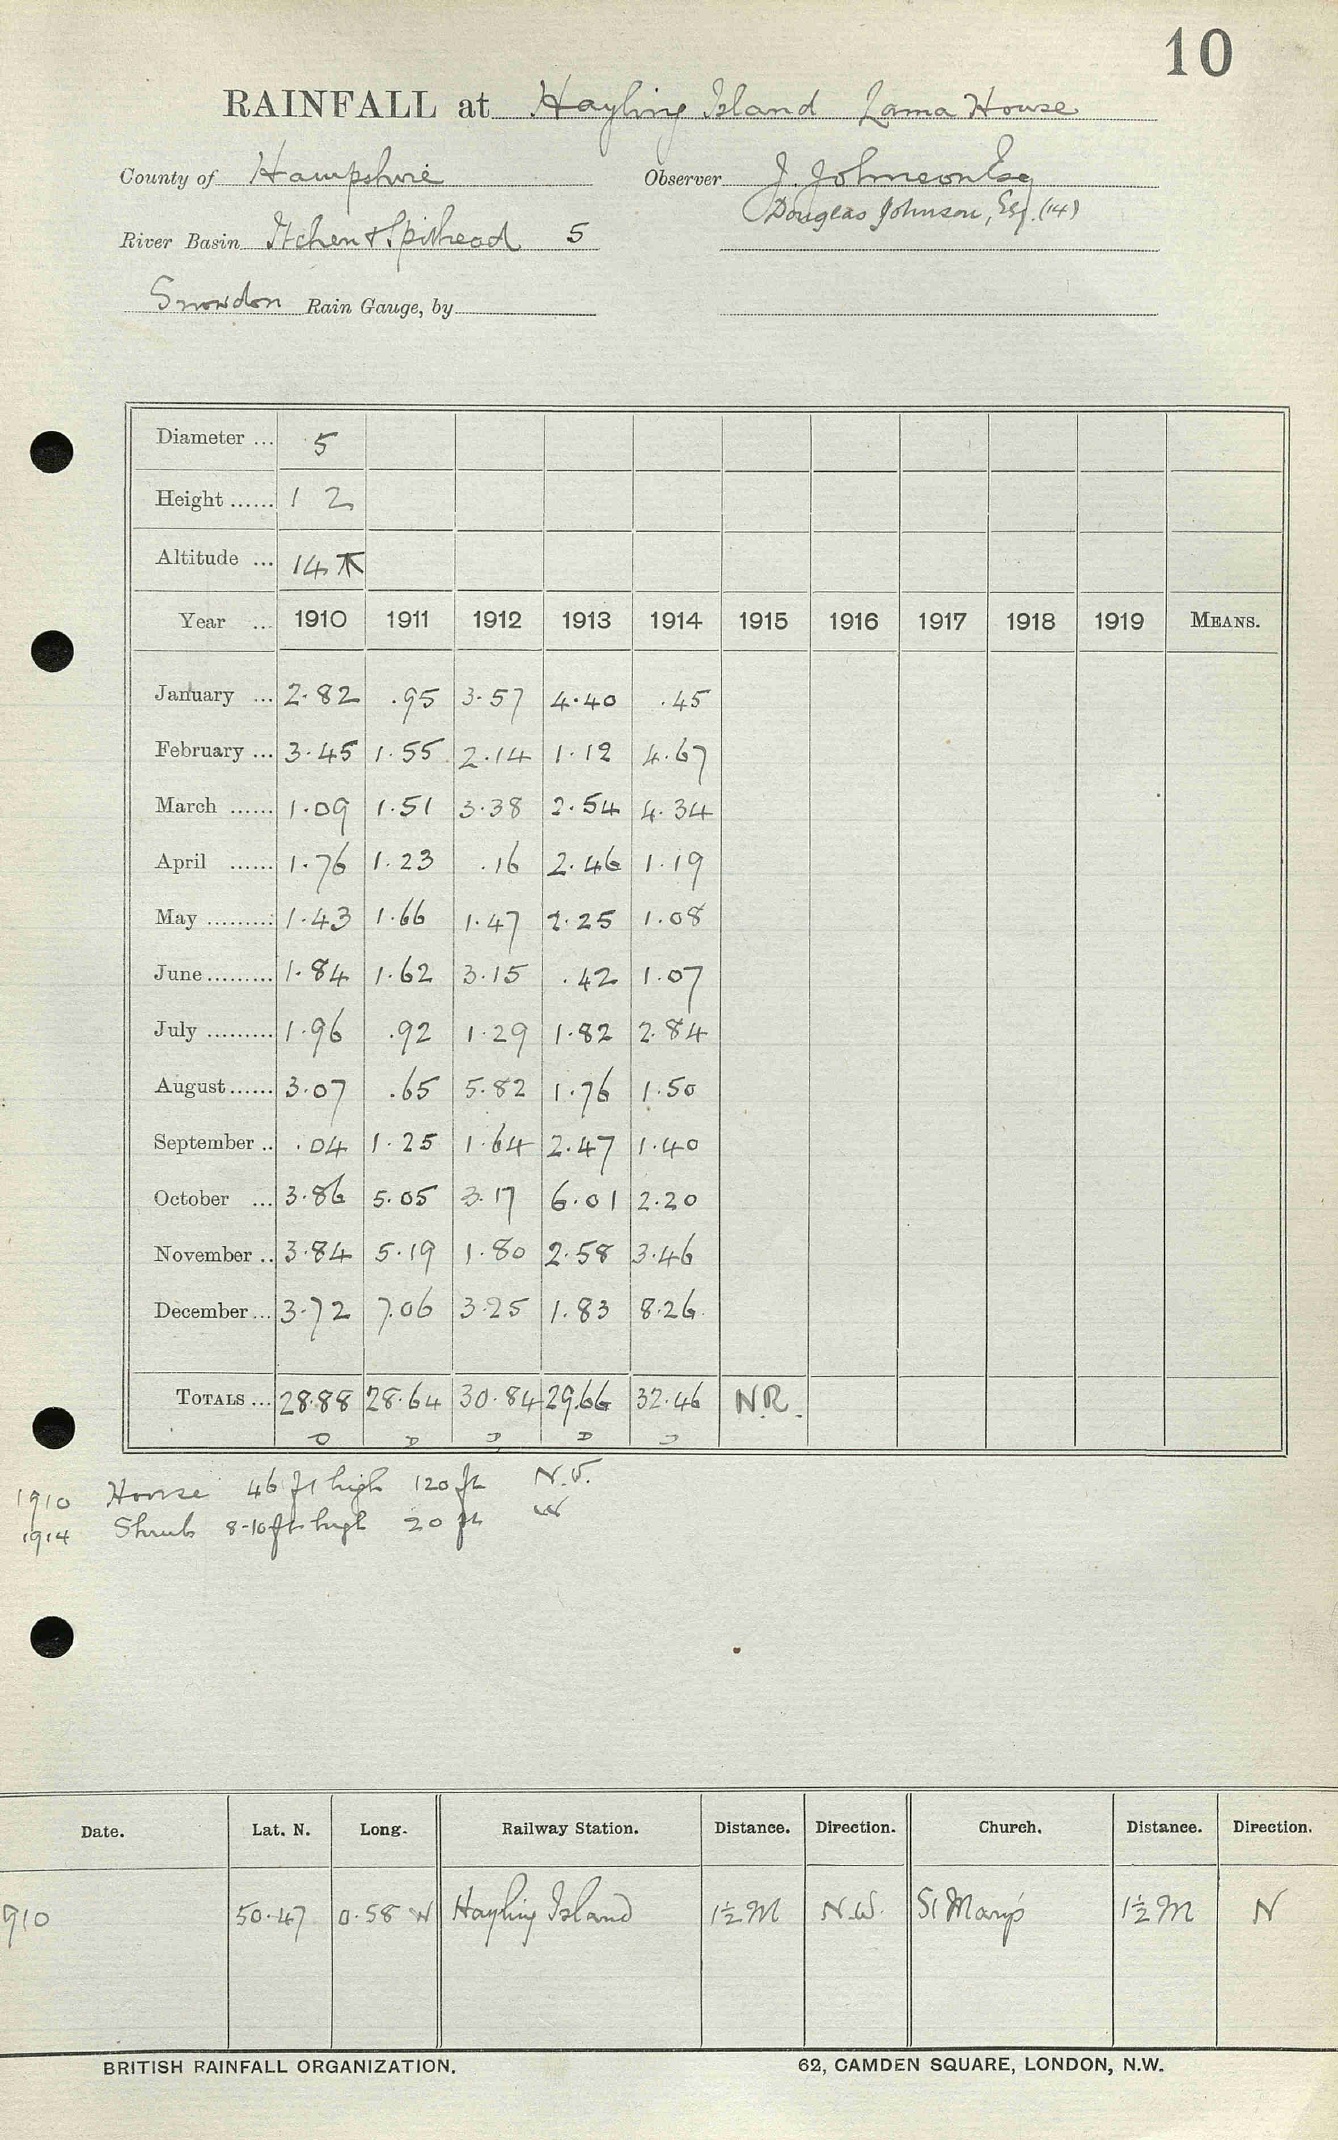 10
RAINFALL at Hayling Island Lama House
County of Hampshire Observer J. Johnson Esq
Douglas Johnson, Esq. (14)
River Basin Itchen & Spithead 5
Snowdon Rain Gauge, by
Diameter ... 5
Height ...... 1 2
Altitude ... 14
Year ... 1910 1911 1912 1913 1914 1915 1916 1917 1918 1919 MEANS.
January ... 2.82 .95 3.57 4.40 .45
February ... 3.45 1.55 2.14 1.12 4.67
March ...... 1.09 1.51 3.38 2.54 4.34
April ...... 1.76 1.23 .16 2.46 1.19
May ......... 1.43 1.66 1.47 2.25 1.08
June ......... 1.84 1.62 3.15 .42 1.07
July ......... 1.96 .92 1.29 1.82 2.84
August ...... 3.07 .65 5.82 1.76 1.50
September .. .04 1.25 1.64 2.47 1.40
October ... 3.86 5.05 3.17 6.01 2.20
November .. 3.84 5.19 1.80 2.58 3.46
December ... 3.72 7.06 3.25 1.83 8.26
TOTALS ... 28.88 28.64 30.84 29.66 32.46 N.R.
1910 House 46 ft high 120 ft N.W.
1914 Shrub 8-10 ft high 20 ft W
Date. Lat. N. Long. Railway Station. Distance. Direction. Church. Distance. Direction.
910 50.47 0.58 W Hayling Island 1½ M N.W. St Mary's 1½ M N
BRITISH RAINFALL ORGANIZATION. 62, CAMDEN SQUARE, LONDON, N.W.